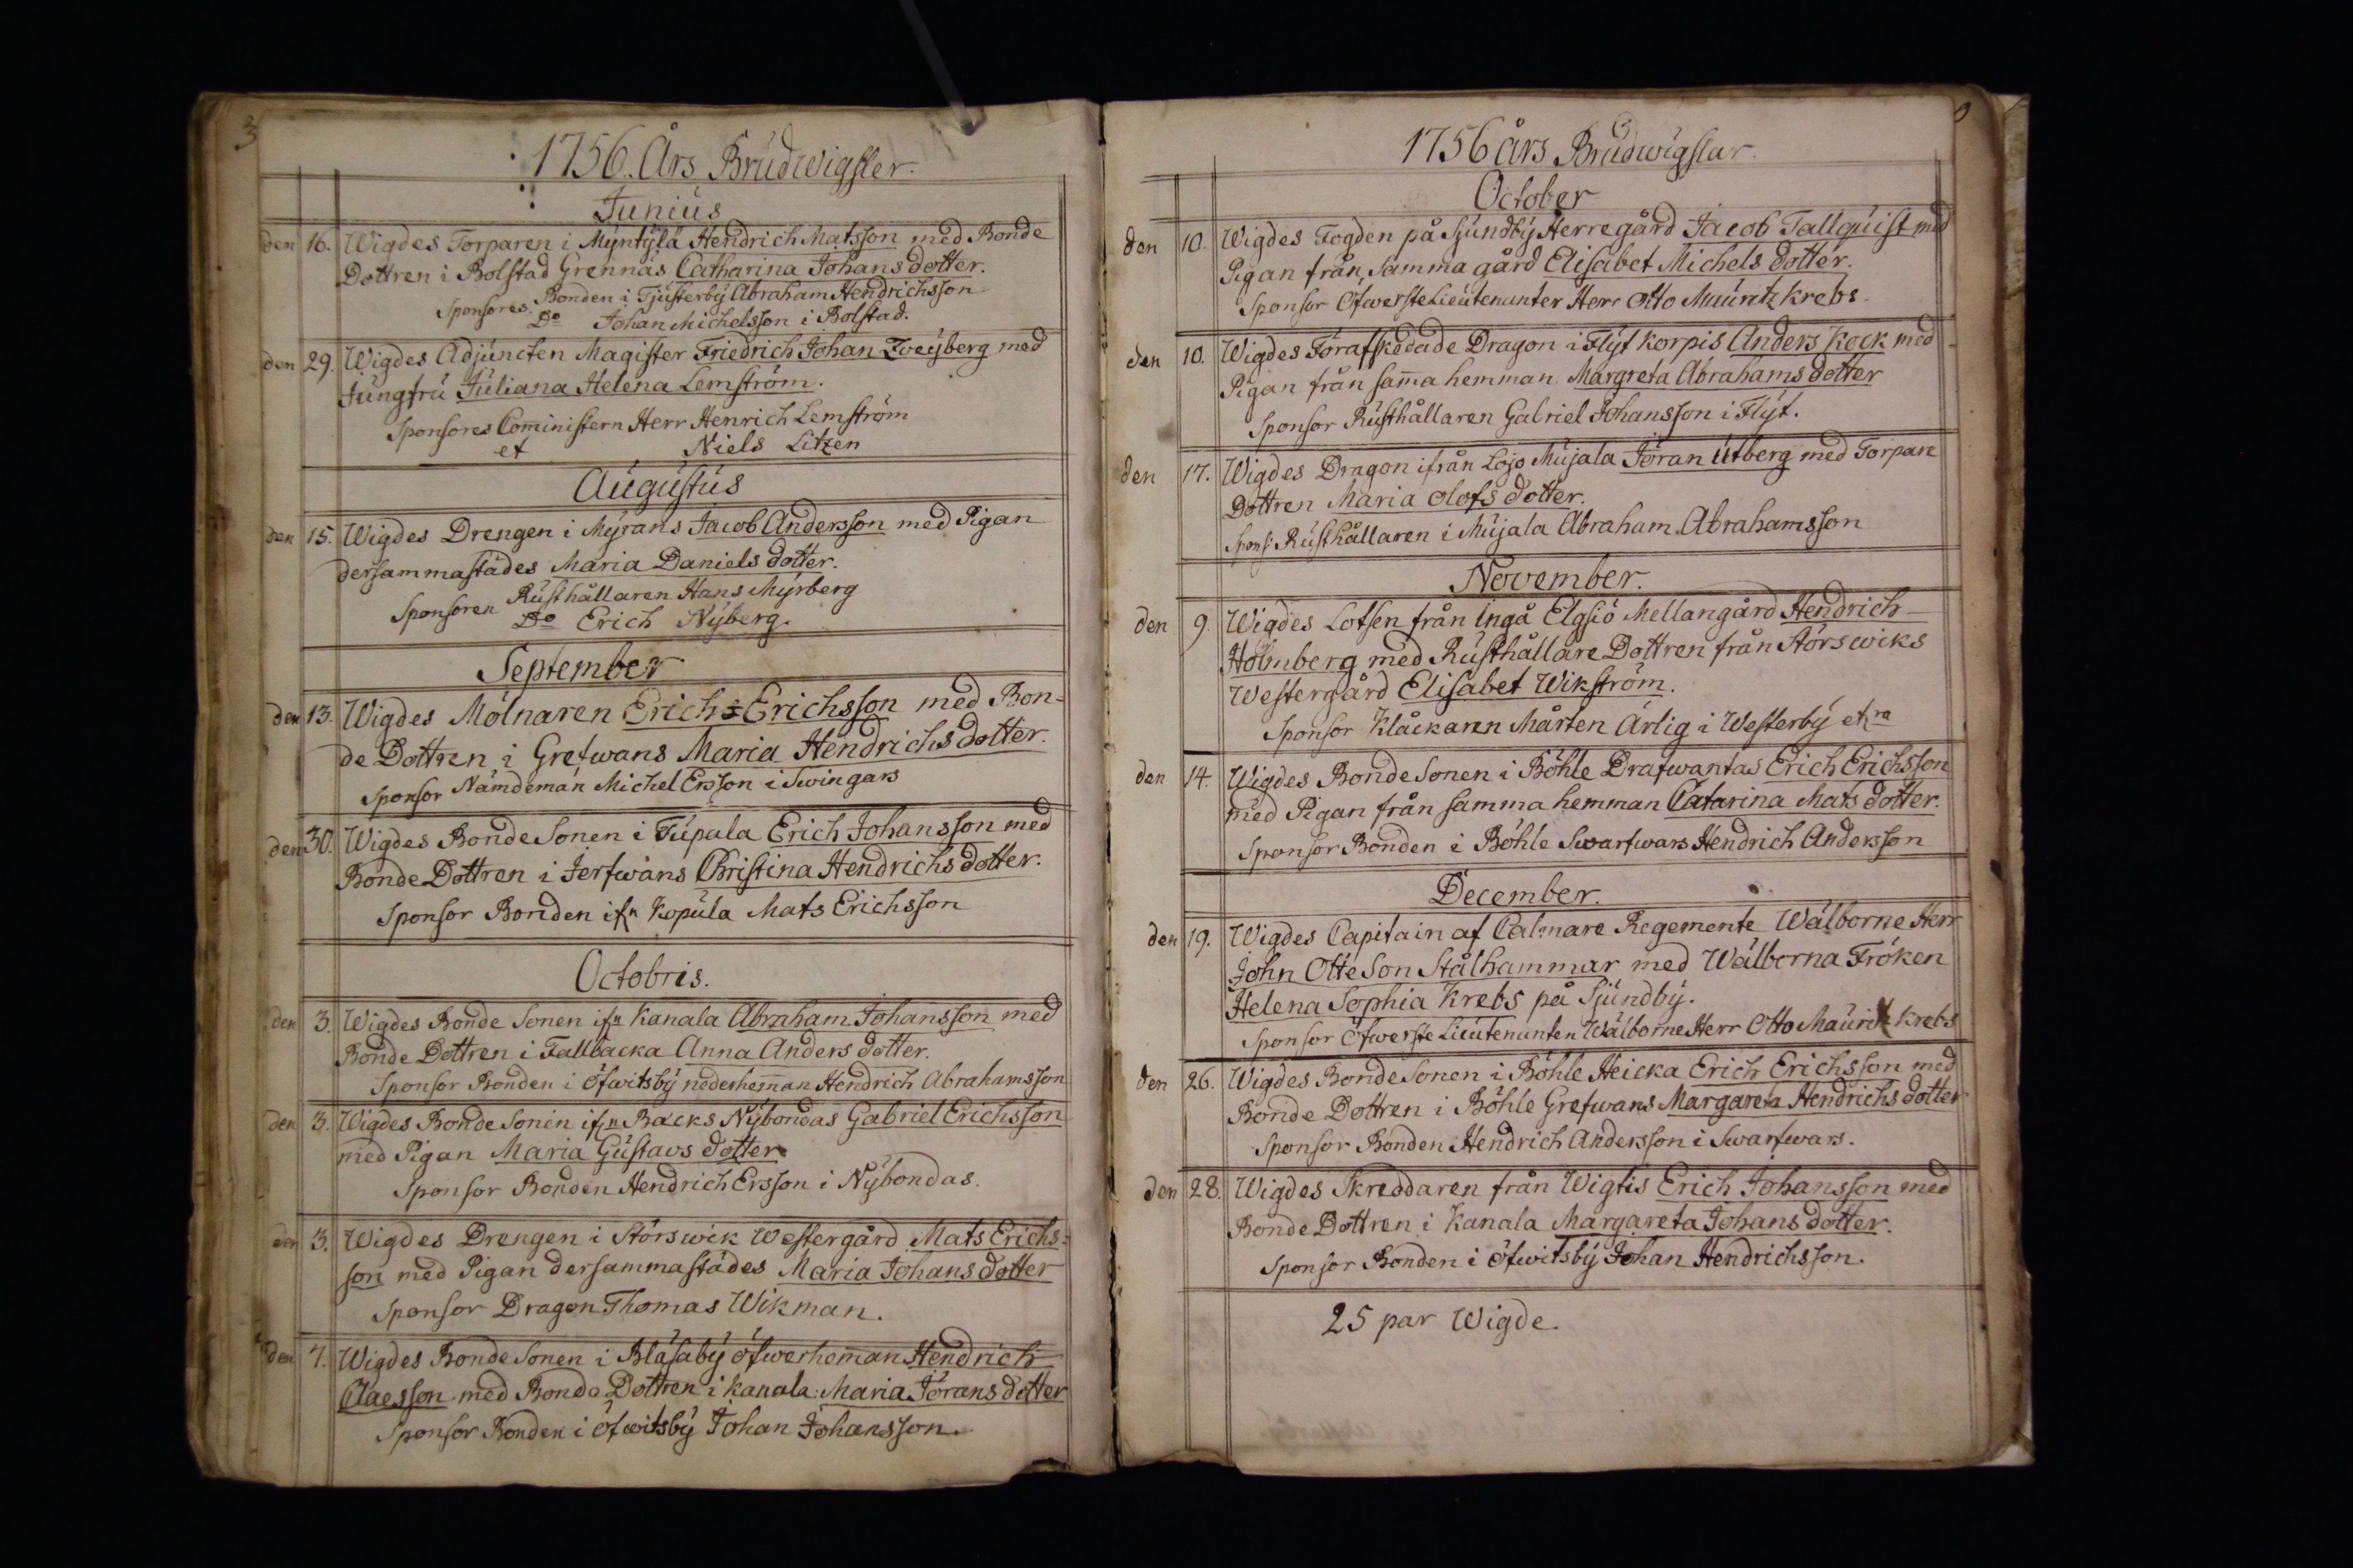 3
1756. Års Brudwigsler.
Junius
den 16. Wigdes Torparen i Myntylä Hendrich Matsson med Bonde
Dottren i Bolstad Grennäs Catharina Johans dotter.
Sponsores. Bonden i Tjusterby Abraham Hendrichsson
Do Johan Michelsson i Bolstad.
den 29. Wigdes Adjuncten Magister Friedrich Johan Zweyberg med
Jungfru Juliana Helena Lemström.
Sponsores Com̄inistern Herr Henrich Lemström
et Niels Litzen
Augustus
den 15. Wigdes Drengen i Myrans Jacob Andersson med Pigan
dersammastädes Maria Daniels dotter.
Sponsoren Rusthållaren Hans Myrberg
Do Erich Nyberg.
September
den 13. Wigdes Mölnaren Erich Erichsson med Bon-
de Dottren i Grefwans Maria Hendrichs dotter.
Sponsor Nämdeman Michel Ersson i Swingars
den 30. Wigdes Bonde Sonen i Tupala Erich Johansson med
Bonde Dottren i Jerfwans Christina Hendrichs dotter.
Sponsor Bonden ifn Kopula Mats Erichsson
Octobris.
den 3. Wigdes Bonde Sonen ifn Kanala Abraham Johansson med
Bonde Dottren i Fallbacka Anna Anders dotter.
Sponsor Bonden i Öfwitsby nederhem̄an Hendrich Abrahamsson
den 3. Wigdes Bonde Sonen ifn Backs Nybondas Gabriel Erichsson
med Pigan Maria Gustavs dotter
Sponsor Bonden Hendrich Ersson i Nybondas.
den 3. Wigdes Drengen i Störswik Westergård Mats Erichs=
son med Pigan dersammastädes Maria Johans dotter
Sponsor Dragon Thomas Wikman.
den 7. Wigdes Bonde Sonen i Bläsaby öfwerhem̄an Hendrich
Claesson med Bonde Dottren i Kanala Maria Jörans dotter
Sponsor Bonden i öfwitsby Johan Johansson.
1756 års Brudwigslar.
October
den 10. Wigdes Fogden på Sjundby Herregård Jacob Tallquist med
Pigan från samma gård Elisabet Michels dotter.
Sponsor Öfwerste Lieutenanter Herr Otto Mauritz Krebs.
den 10. Wigdes Förafskedade Dragon i Flyt Korpis Anders Kock med
Pigan från sam̄a hemman Margreta Abrahams dotter
Sponsor Rusthållaren Gabriel Johansson i Flyt.
den 17. Wigdes Dragon ifrån Lojo Mujala Jöran Utberg med Torpare
Dottren Maria Olofs dotter.
Spons: Rusthållaren i Mujala Abraham Abrahamsson
November.
den 9. Wigdes Lotsen från Ingå Elgsiö Mellangård Hendrich
Holmberg med Rusthållare Dottren från Störswiks
Westergård Elisabet Wikström.
Sponsor Klåckaren Mårten Ärlig i Westerby etra
den 14. Wigdes Bonde Sonen i Böhle Drafwantas Erich Erichsson
med Pigan från samma hemman Catarina Mats dotter.
Sponsor Bonden i Böhle Swarfwars Hendrich Andersson
December.
den 19. Wigdes Capitain af Calmare Regemente Wälborne Herr
John Otteson Stålhammar med Wälborna Fröken
Helena Sophia Krebs på Sjundby.
Sponsor Öfwerste Lieutenanten Wälborne Herr Otto Mauritz Krebs
den 26. Wigdes Bonde Sonen i Böhle Heicka Erich Erichsson med
Bonde Dottren i Böhle Grefwans Margareta Hendrichs dotter
Sponsor Bonden Hendrich Andersson i Swarfwars.
den 28. Wigdes Skreddaren från Wigtis Erich Johansson med
Bonde Dottren i Kanala Margareta Johans dotter.
Sponsor Bonden i öfwitsby Johan Hendrichsson.
25 par Wigde.